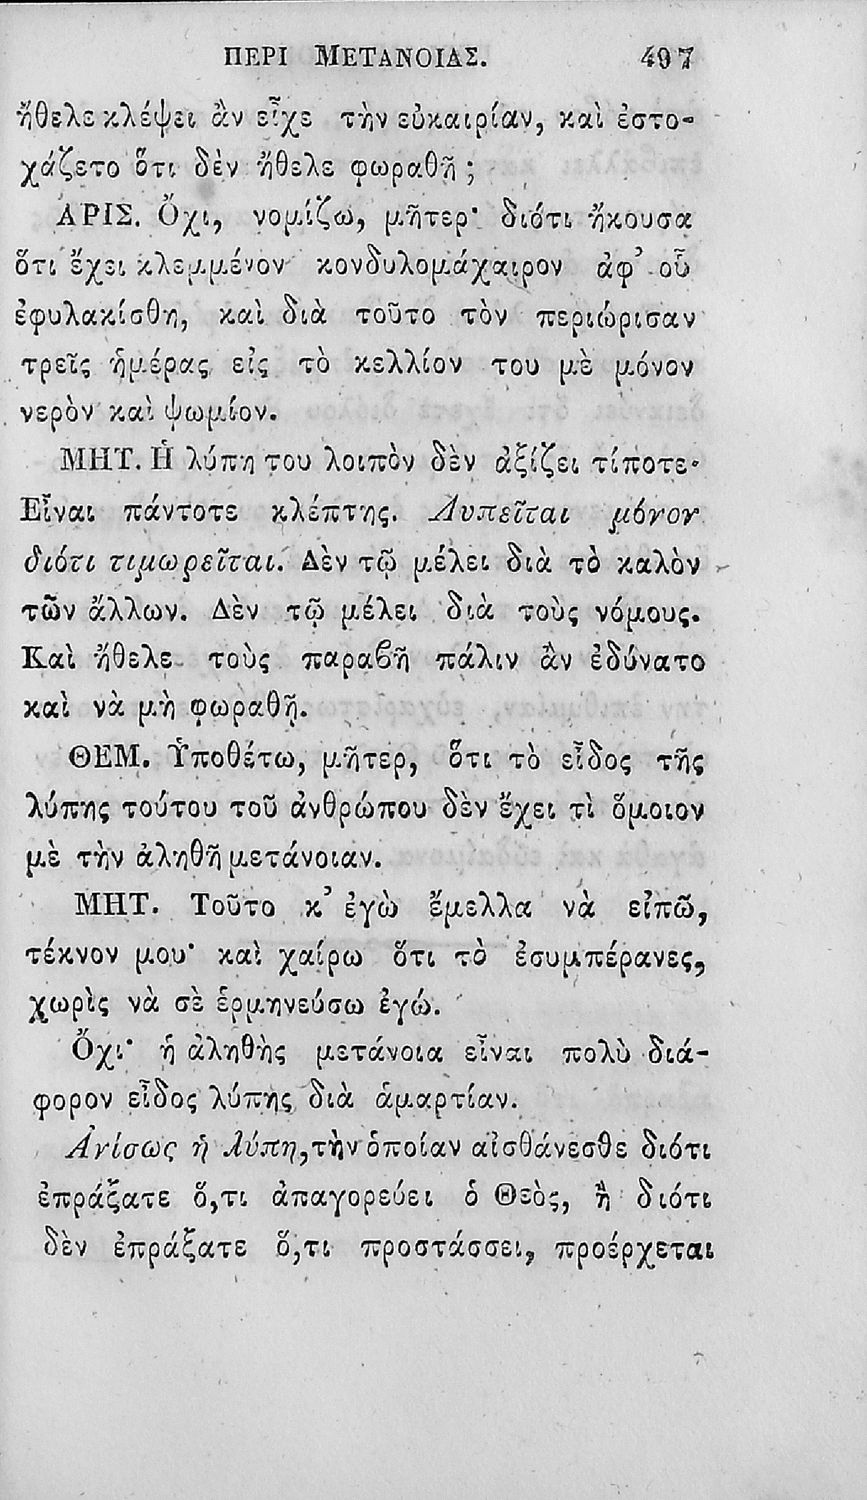 ΠΕΡΙ ΜΕΤΑΝΟΙΑΣ. 497
ἤθελε κλέψει ἂν εἶχε τὴν εὐκαιρίαν, καὶ ἐστο-
χάζετο ὅτι δὲν ἤθελε φωραθῆ ;
ΑΡΙΣ. Ὄχι, νομίζω, μῆτερ· διότι ἤκουσα
ὅτι ἔχει κλεμμένον κονδυλομάχαιρον ἀφ' οὗ
ἐφυλακίσθη, καὶ διὰ τοῦτο τὸν περιώρισαν
τρεῖς ἡμέρας εἰς τὸ κελλίον του μὲ μόνον
νερὸν καὶ ψωμίον.
ΜΗΤ. Ἡ λύπη του λοιπὸν δὲν ἀξίζει τίποτε·
Εἶναι πάντοτε κλέπτης. Λυπεῖται μόνον
διότι τιμωρεῖται. Δὲν τῷ μέλει διὰ τὸ καλὸν
τῶν ἄλλων. Δὲν τῷ μέλει διὰ τοὺς νόμους.
Καὶ ἤθελε τοὺς παραβῆ πάλιν ἂν ἐδύνατο
καὶ νὰ μὴ φωραθῇ.
ΘΕΜ. Ὑποθέτω, μῆτερ, ὅτι τὸ εἶδος τῆς
λύπης τούτου τοῦ ἀνθρώπου δὲν ἔχει τὶ ὅμοιον
μὲ τὴν ἀληθῆ μετάνοιαν.
ΜΗΤ. Τοῦτο κ' ἐγὼ ἔμελλα νὰ εἰπῶ,
τέκνον μου· καὶ χαίρω ὅτι τὸ ἐσυμπέρανες,
χωρὶς νὰ σὲ ἑρμηνεύσω ἐγώ.
Ὄχι· ἡ ἀληθὴς μετάνοια εἶναι πολὺ διά-
φορον εἶδος λύπης διὰ ἁμαρτίαν.
Ἀνίσως ἡ λύπη, τὴν ὁποίαν αἰσθάνεσθε διότι
ἐπράξατε ὅ,τι ἀπαγορεύει ὁ Θεὸς, ἢ διότι
δὲν ἐπράξατε ὅ,τι προστάσσει, προέρχεται